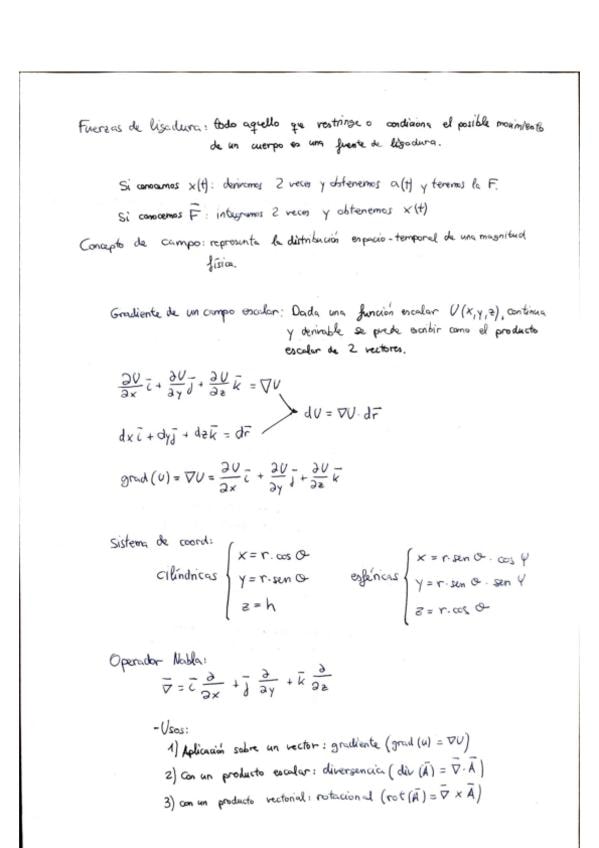 Fuerzas de ligadura: todo aquello que restringe o condiciona el posible movimiento
de un cuerpo es una fuente de ligadura.
Si conocemos x(t): derivamos 2 veces y obtenemos a(t) y tenemos la F.
Si conocemos F⃗: integramos 2 veces y obtenemos x(t)
Concepto de campo: representa la distribución espacio-temporal de una magnitud
física.
Gradiente de un campo escalar: Dada una función escalar U(x,y,z), continua
y derivable se puede escribir como el producto
escalar de 2 vectores.
∂U/∂x i̅ + ∂U/∂y j̅ + ∂U/∂z k̅ = ∇U
dU = ∇U · dr̅
dx i̅ + dy j̅ + dz k̅ = dr̅
grad(U) = ∇U = ∂U/∂x i̅ + ∂U/∂y j̅ + ∂U/∂z k̅
Sistema de coord:
cilíndricas { x = r·cos θ
y = r·sen θ
z = h
esféricas { x = r·sen θ · cos φ
y = r·sen θ · sen φ
z = r·cos θ
Operador Nabla:
∇̅ = i̅ ∂/∂x + j̅ ∂/∂y + k̅ ∂/∂z
-Usos:
1) Aplicación sobre un vector: gradiente (grad(u) = ∇U)
2) Con un producto escalar: divergencia (div (A̅) = ∇̅·A̅)
3) con un producto vectorial: rotacional (rot(A̅) = ∇̅ x A̅)